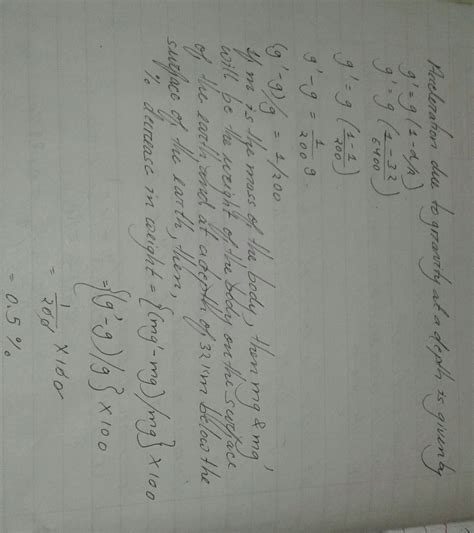 Acceleration due to gravity at a depth is given by
g' = g (1 - d/R)
g' = g (1 - 32/6400)
g' = g (1 - 1/200)
g' - g = 1/200 g.
(g' - g)/g = 1/200
If m is the mass of the body, then mg & mg'
will be the weight of the body on the surface
of the earth and at a depth of 32 km below the
surface of the earth, then,
% decrease in weight = {(mg' - mg)/mg} × 100
= {(g' - g)/g} × 100
= 1/200 × 100
= 0.5 %